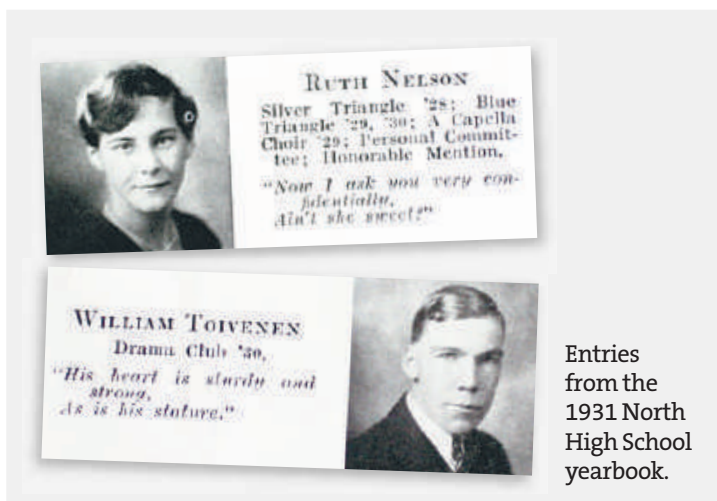 RUTH NELSON
Silver Triangle '28; Blue
Triangle '29, '30; A Capella
Choir '29; Personal Commit-
tee; Honorable Mention.
"Now I ask you very con-
fidentially,
Ain't she sweet?"
WILLIAM TOIVENEN
Drama Club '30.
"His heart is sturdy and
strong,
As is his stature."
Entries
from the
1931 North
High School
yearbook.